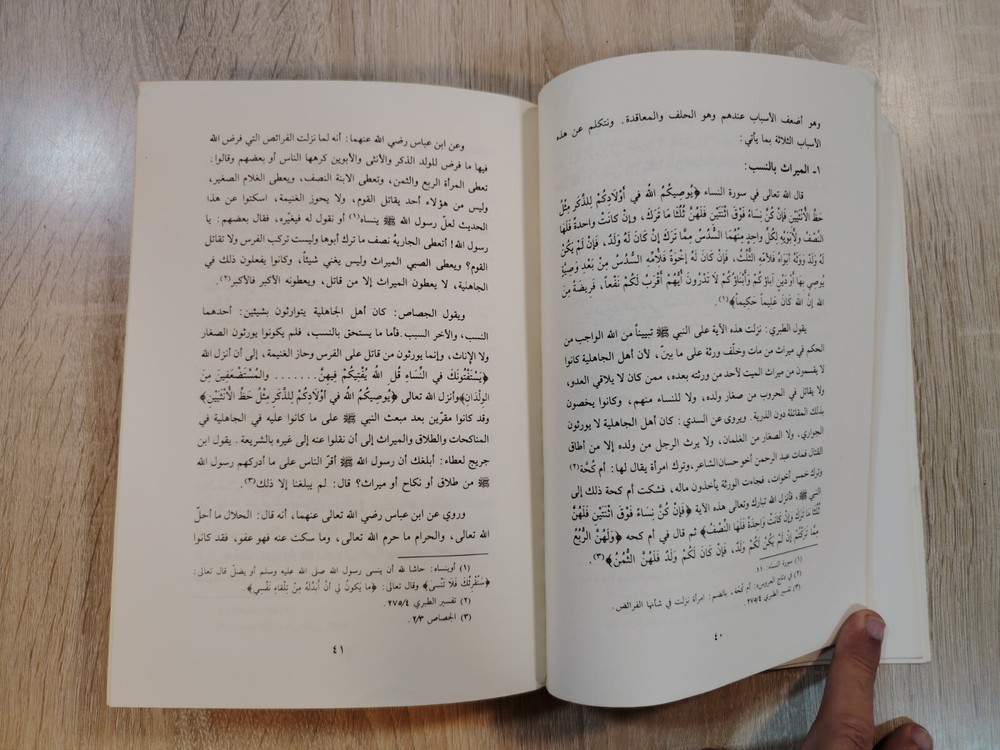 وهو أضعف الأسباب عندهم وهو الحلف والمعاقدة. ونتكلم عن هذه
الأسباب الثلاثة بما يأتي:
١- الميراث بالنسب:
قال الله تعالى في سورة النساء ﴿يُوصِيكُمُ اللهُ في أوْلَادِكُمْ لِلذَّكَرِ مِثْلُ
حَظِّ الأُنْثَيَيْنِ فَإنْ كُنَّ نِسَاءً فَوْقَ اثْنَتَيْنِ فَلَهُنَّ ثُلُثَا مَا تَرَكَ، وإنْ كانَتْ واحدةً فَلَهَا
النِّصْفُ ولأبَوَيْهِ لِكُلِّ واحِدٍ مِنْهُمَا السُّدُسُ مِمَّا تَرَكَ إنْ كَانَ لَهُ وَلَدٌ، فَإنْ لَمْ يَكُنْ
لَهُ وَلَدٌ وَوَرِثَهُ أبَوَاهُ فلأمِّهِ الثُّلُثُ، فَإنْ كَانَ لَهُ إخْوَةٌ فَلأمِّهِ السُّدُسُ مِنْ بَعْدِ وَصِيَّةٍ
يُوصِي بها أوْ دَيْنٍ آباؤُكُمْ وَأبْنَاؤُكُمْ لَا تَدْرُونَ أيُّهُمْ أقْرَبُ لَكُمْ نَفْعاً، فَرِيضَةً مِنَ
الله إنَّ اللهَ كَانَ عَلِيماً حَكِيماً﴾(١).
يقول الطبري: نزلت هذه الآية على النبي ﷺ تبييناً من الله الواجب من
الحكم في ميراث من مات وخلّف ورثة على ما بينّ، لأن أهل الجاهلية كانوا
لا يقسمون من ميراث الميت لأحد من ورثته بعده، ممن كان لا يلاقي العدو،
ولا يقاتل في الحروب من صغار ولده، ولا للنساء منهم، وكانوا يخصون
بذلك المقاتلة دون الذرية. ويروى عن السدي: كان أهل الجاهلية لا يورثون
الجواري، ولا الصغار من الغلمان، ولا يرث الرجل من ولده إلا من أطاق
القتال فمات عبد الرحمن أخو حسان الشاعر، وترك امرأة يقال لها: أم كُحَّة(٢)
وترك خمس أخوات، فجاءت الورثة يأخذون ماله، فشكت أم كحة ذلك إلى
النبي ﷺ، فأنزل الله تبارك وتعالى هذه الآية ﴿فَإنْ كُنَّ نِسَاءً فَوْقَ اثْنَتَيْنِ فَلَهُنَّ
ثُلُثَا مَا تَرَكَ وإنْ كَانَتْ وَاحِدَةً فَلَهَا النِّصْفُ﴾ ثم قال في أم كحه ﴿وَلَهُنَّ الرُّبُعُ
مِمَّا تَرَكْتُمْ إنْ لَمْ يَكُنْ لَكُمْ وَلَدٌ، فَإنْ كَانَ لَكُمْ وَلَدٌ فَلَهُنَّ الثُّمُنُ﴾(٣).
(١) سورة النساء: ١١.
(٢) في «تاج العروس»: أم كُحَّة، بالضم: امرأة نزلت في شأنها الفرائض.
(٣) تفسير الطبري ٢٧٥/٤.
٤٠
وعن ابن عباس رضي الله عنهما: أنه لما نزلت الفرائض التي فرض الله
فيها ما فرض للولد الذكر والأنثى والأبوين كرهها الناس أو بعضهم وقالوا:
تعطى المرأة الربع والثمن، وتعطى الابنة النصف، ويعطى الغلام الصغير،
وليس من هؤلاء أحد يقاتل القوم، ولا يحوز الغنيمة، اسكتوا عن هذا
الحديث لعلّ رسول الله ﷺ ينساه(١) أو نقول له فيغيّره، فقال بعضهم: يا
رسول الله! أتعطى الجاريةُ نصف ما ترك أبوها وليست تركب الفرس ولا تقاتل
القوم؟ ويعطى الصبي الميراث وليس يغني شيئاً، وكانوا يفعلون ذلك في
الجاهلية، لا يعطون الميراث إلا من قاتل، ويعطونه الأكبر فالأكبر(٢).
ويقول الجصاص: كان أهل الجاهلية يتوارثون بشيئين: أحدهما
النسب، والآخر السبب. فأما ما يستحق بالنسب، فلم يكونوا يورثون الصغار
ولا الإناث، وإنما يورثون من قاتل على الفرس وحاز الغنيمة، إلى أن أنزل الله
﴿يَسْتَفْتُونَكَ في النِّسَاءِ قُلِ اللهُ يُفْتِيكُمْ فِيهِنَّ....... والمُسْتَضْعَفِينَ مِنَ
الوِلْدَانِ﴾ وأنزل الله تعالى ﴿يُوصِيكُمُ اللهُ في أوْلَادِكُمْ لِلذَّكَرِ مِثْلُ حَظِّ الأُنْثَيَيْنِ﴾
وقد كانوا مقرّين بعد مبعث النبي ﷺ على ما كانوا عليه في الجاهلية في
المناكحات والطلاق والميراث إلى أن نقلوا عنه إلى غيره بالشريعة. يقول ابن
جريج لعطاء: أبلغك أن رسول الله ﷺ أقرّ الناس على ما أدركهم رسول الله
ﷺ من طلاق أو نكاح أو ميراث؟ قال: لم يبلغنا إلا ذلك(٣).
وروي عن ابن عباس رضي الله تعالى عنهما، أنه قال: الحلال ما أحلّ
الله تعالى، والحرام ما حرم الله تعالى، وما سكت عنه فهو عفو، فقد كانوا
(١) أوينساه: حاشا لله أن ينسى رسول الله صلى الله عليه وسلم أو يضلّ قال تعالى:
﴿سَنُقْرِئُكَ فَلَا تَنْسَىٰ﴾ وقال تعالى: ﴿ما يَكُونُ لي أنْ أُبَدِّلَهُ مِنْ تِلْقَاءِ نَفْسِي﴾.
(٢) تفسير الطبري ٢٧٥/٤.
(٣) الجصاص ٢/٣.
٤١